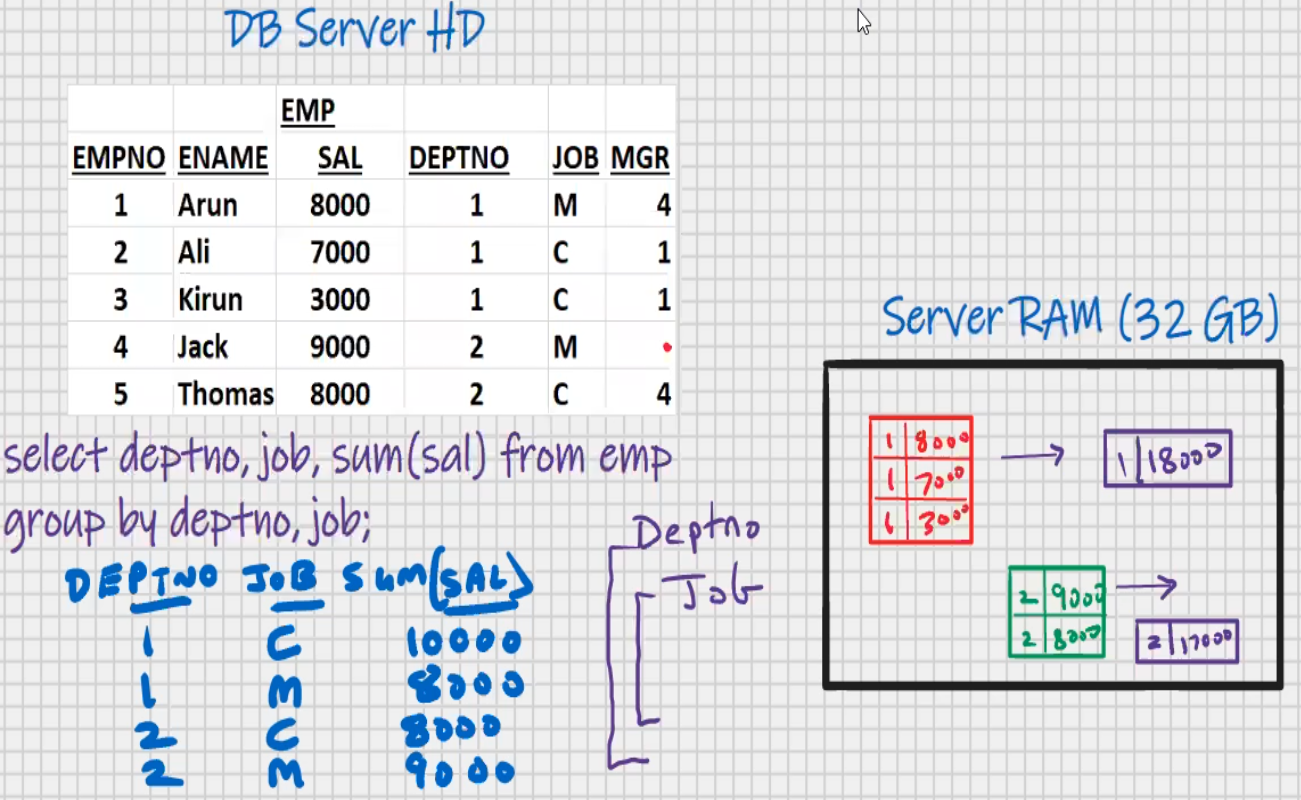 DB Server HD
EMP
EMPNO ENAME SAL DEPTNO JOB MGR
1 Arun 8000 1 M 4
2 Ali 7000 1 C 1
3 Kirun 3000 1 C 1
4 Jack 9000 2 M
5 Thomas 8000 2 C 4
select deptno, job, sum(sal) from emp
group by deptno, job;
DEPTNO JOB SUM(SAL)
1 C 10000
1 M 8000
2 C 8000
2 M 9000
Deptno
Job
Server RAM (32 GB)
1 8000
1 7000
1 3000
1 18000
2 9000
2 8000
2 17000